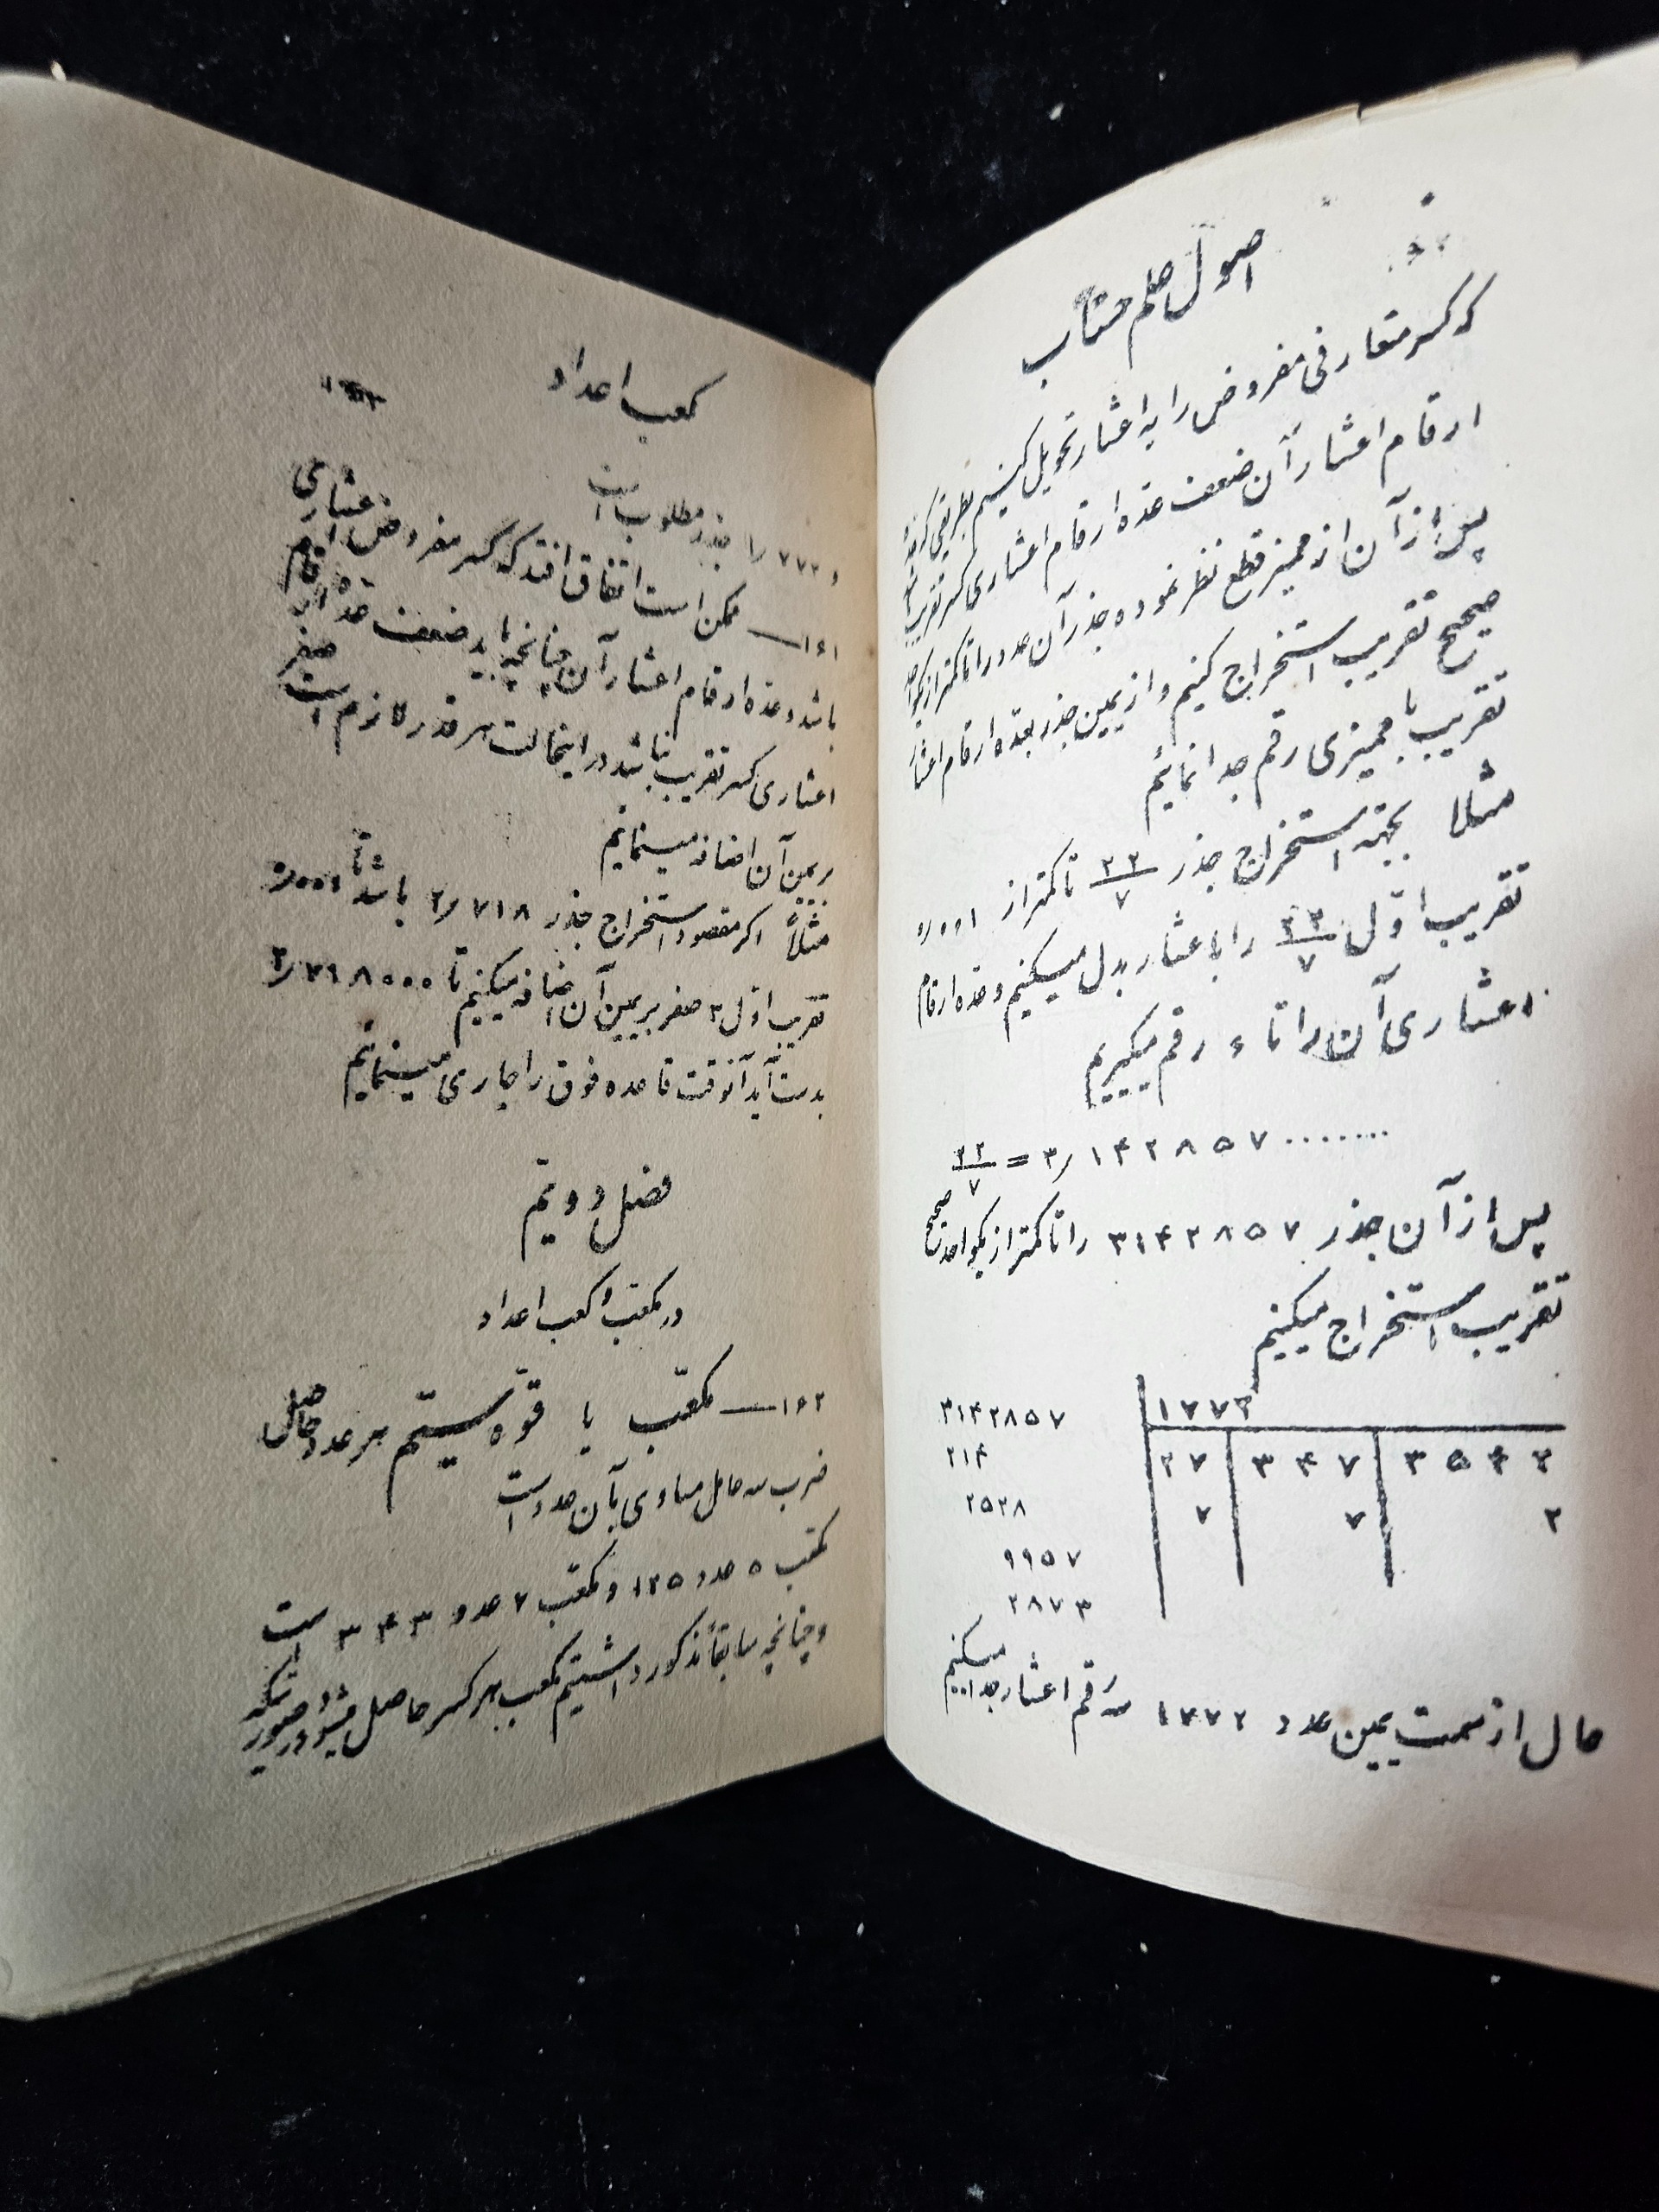 اصول علم حساب
که کسر متعارفی مفروض را به اعشار تحویل کنیم بطریقی که عدهٔ
ارقام اعشار آن ضعف عدّه ارقام اعشاری کسر تقریب باشد
پس از آن از ممیز قطع نظر نموده جذر آن عدد را تا کمتر از یکواحد
صحیح تقریب استخراج کنیم و از یمین جذر بعدّه ارقام اعشار
تقریب با ممیزی رقم جدا نمائیم
مثلا بجهته استخراج جذر ۲۲/۷ تا کمتر از ۰٫۰۰۱
تقریب اوّل ۲۲/۷ را باعشار بدل میکنیم و عده ارقام
اعشاری آن را تا ۶ رقم میگیریم
۲۲/۷ = ۳٫۱۴۲۸۵۷ ........
پس از آن جذر ۳۱۴۲۸۵۷ را تا کمتر از یکواحد صحیح
تقریب استخراج میکنیم
۳۱۴۲۸۵۷ ۱۷۷۲
۲۱۴ ۲۷ ۳۴۷ ۳۵۴۲
۲۵۲۸ ۷ ۷ ۲
۹۹۵۷
۲۸۷۳
حال از سمت یمین عدد ۱۷۷۲ سه رقم اعشار جدا میکنیم
کعب اعداد
و ۱٫۷۷۲ جذر مطلوب است
۱۶۱— ممکن است اتفاق افتد که کسر مفروض اعشاری
باشد و عدّه ارقام اعشار آن چنانچه باید ضعف عدّه ارقام
اعشاری کسر تقریب نباشد در اینحالت هر قدر لازم است صفر
بر یمین آن اضافه مینمائیم
مثلاً اگر مقصود استخراج جذر ۲٫۷۱۸ باشد تا ۰٫۰۰۱
تقریب اوّل ۳ صفر بر یمین آن اضافه میکنیم تا ۲٫۷۱۸۰۰۰
بدست آید آنوقت قاعده فوق را جاری مینمائیم
فصل دویّم
در مکعّب و کعب اعداد
۱۶۲— مکعّب یا قوّه سیّم هر عدد حاصل
ضرب سه عامل مساوی بآن عدد است
مکعّب ۵ عدد ۱۲۵ و مکعّب ۷ عدد ۳۴۳ است
و چنانچه سابقاً مذکور داشتیم مکعب هر کسر حاصل میشود در صورتیکه